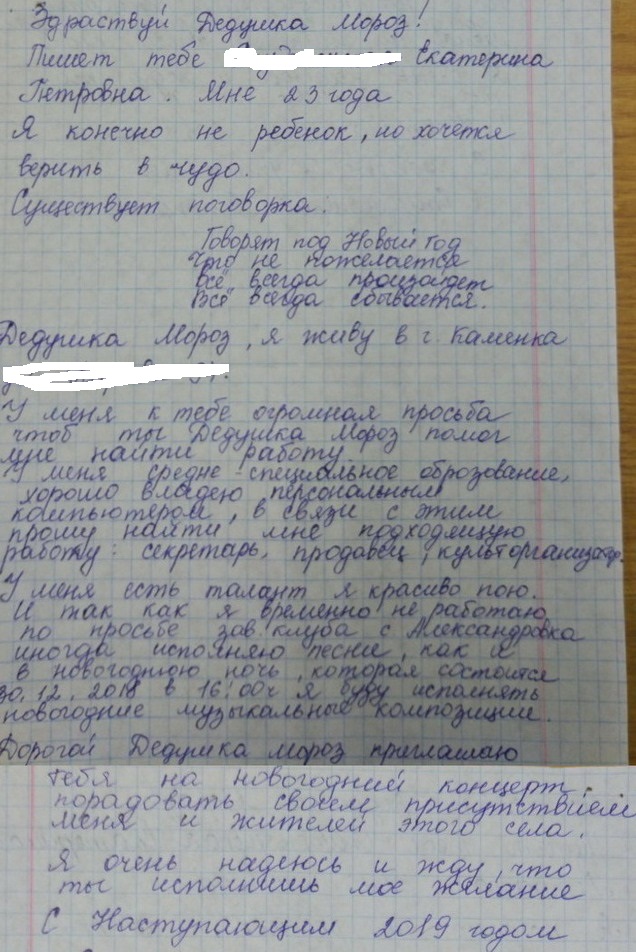 Здраствуй Дедушка Мороз!
Пишет тебе Екатерина
Петровна. Мне 23 года
Я конечно не ребенок, но хочется
верить в чудо.
Существует поговорка:
Говорят под Новый год
Что не пожелается
Всё всегда произайдет
Всё всегда сбывается.
Дедушка Мороз, я живу в г. Каменка
У меня к тебе огромная просьба
чтоб ты Дедушка Мороз помог
мне найти работу.
У меня средне-специальное оброзование,
хорошо владею персональным
компьютером, в связи с этим
прошу найти мне подходящую
работу: секретарь, продавец, культорганизатор.
У меня есть талант я красиво пою.
И так как я временно не работаю,
по просьбе зав.клуба с Александровка
иногда исполняю песни, как и
в новогоднюю ночь, которая состоится
30.12.2018 в 16:00ч я буду исполнять
новогодние музыкальные композиции.
Дорогой Дедушка мороз приглашаю
тебя на новогодний концерт
порадовать своем присутствием
меня и жителей этого села.
Я очень надеюсь и жду, что
ты исполнишь мое желание
С Наступающим 2019 годом